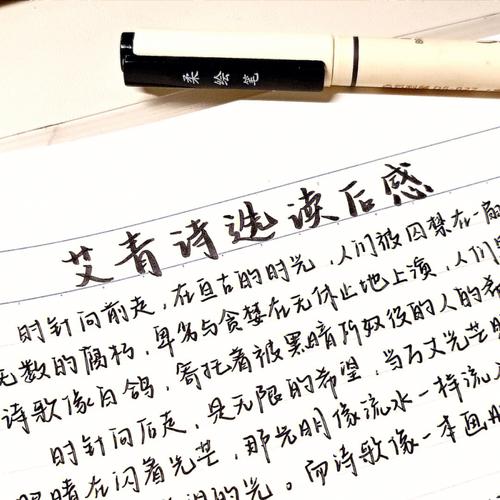 柔绘笔
艾青诗选读后感
时针向前走,在亘古的时光,人们被囚禁在一
无数的腐朽,卑劣与贪婪在无休止地上演,人们
诗歌像白鸽,寄托着被黑暗所奴役的人的希
时针向后走,是无限的希望,当万丈光芒
眼睛在闪着光芒,那光明像流水一样流
的光。而诗歌像一本画册